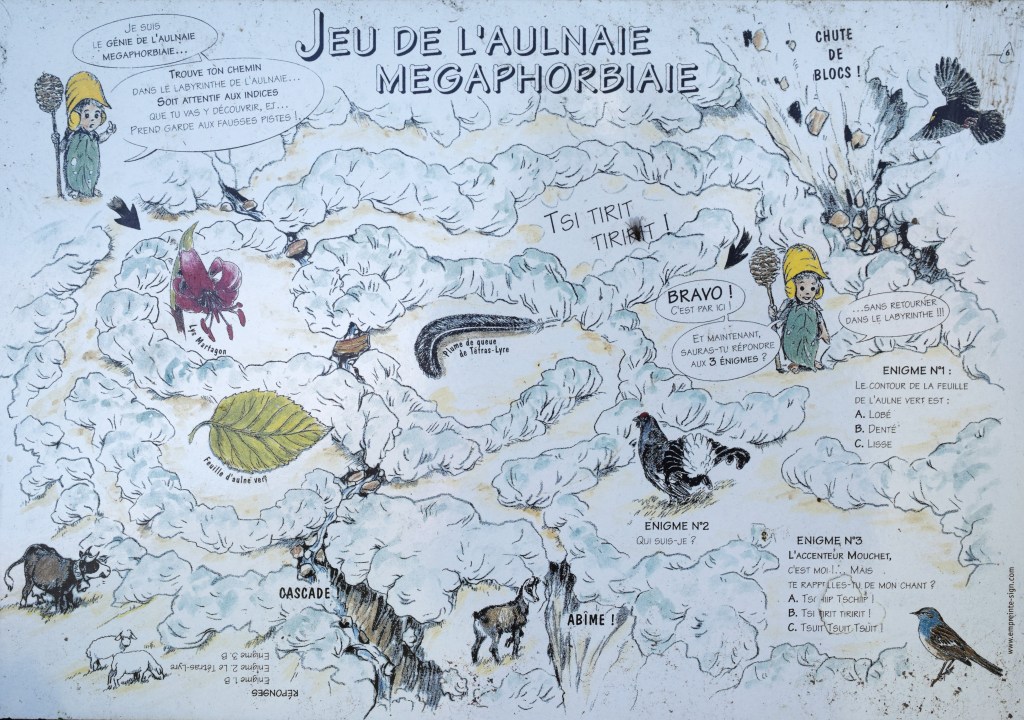 JEU DE L'AULNAIE
MEGAPHORBIAIE
JE SUIS
LE GÉNIE DE L'AULNAIE
MEGAPHORBIAIE...
TROUVE TON CHEMIN
DANS LE LABYRINTHE DE L'AULNAIE...
SOIT ATTENTIF AUX INDICES
QUE TU VAS Y DÉCOUVRIR, ET...
PREND GARDE AUX FAUSSES PISTES !
CHUTE
DE
BLOCS !
TSI TIRIT
TIRIRIT !
Lys Martagon
Plume de queue
de Tétras-Lyre
BRAVO !
C'EST PAR ICI
ET MAINTENANT,
SAURAS-TU RÉPONDRE
AUX 3 ÉNIGMES ?
...SANS RETOURNER
DANS LE LABYRINTHE !!!
ENIGME N°1 :
LE CONTOUR DE LA FEUILLE
DE L'AULNE VERT EST :
A. LOBÉ
B. DENTÉ
C. LISSE
Feuille d'aulne vert
ENIGME N°2
QUI SUIS-JE ?
ENIGME N°3
L'ACCENTEUR MOUCHET,
C'EST MOI !... MAIS
TE RAPPELLES-TU DE MON CHANT ?
A. TSI HIP TSCHIP !
B. TSI TIRIT TIRIRIT !
C. TSUIT TSUIT TSUIT !
CASCADE !
ABÎME !
RÉPONSES
Enigme 1. B
Enigme 2. Le Tétras-Lyre
Enigme 3. B
www.empreinte-sign.com